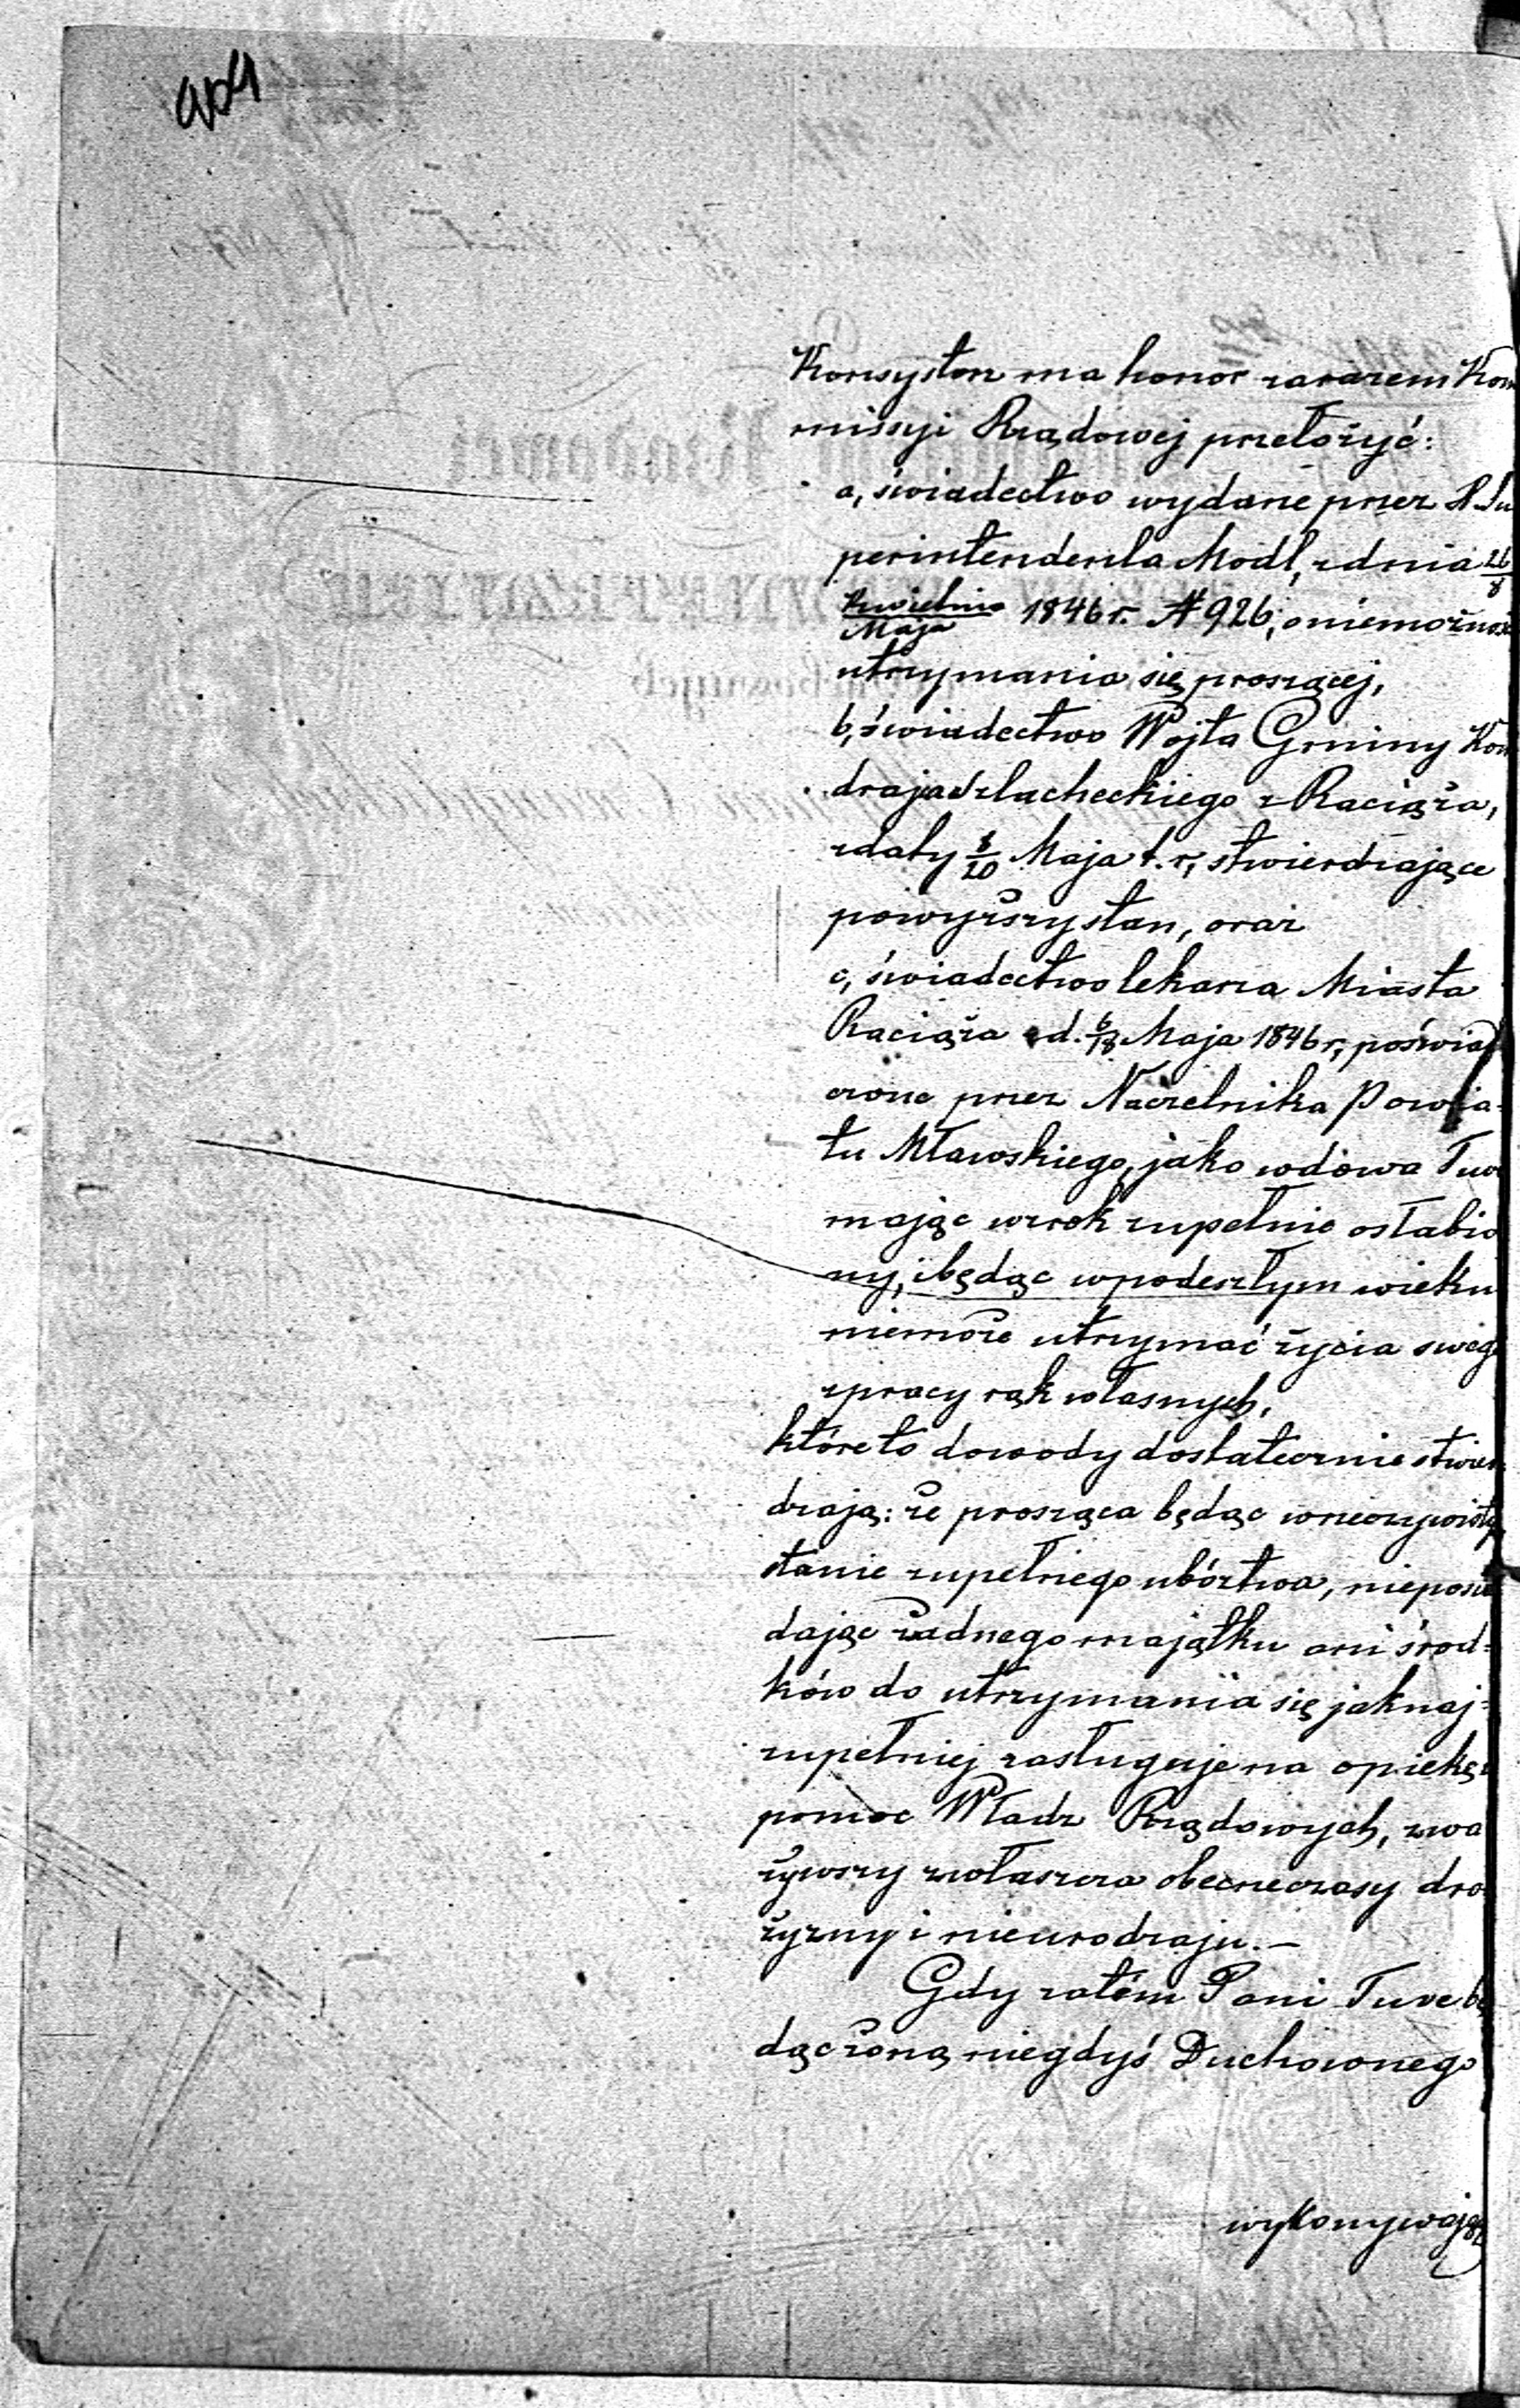 Konsystorz ma honor zarazem Kom
missyi Rządowej przełożyć:
a, świadectwo wydane przez X. Su
perintendenta Modl, z dnia 26/8
Kwietnia/Maja 1846 r. N 926, o niemożnoś
utrzymania się proszącej,
b, świadectwo Wojta Gminy Kon
draja Szlacheckiego z Raciąża,
z daty 8/20 Maja t. r, stwierdzające
powyższy stan, oraz
c, świadectwo lekarza Miasta
Raciąża z d. 6/18 Maja 1846 r, poświad
czone przez Naczelnika Powia-
tu Mławskiego, jako wdowa Tuve
mając wzrok zupełnie osłabio
ny, i będąc w podeszłym wieku
niemoże utrzymać życia swego
z pracy rąk własnych,
które to dowody dostatecznie stwier
dzają: że prosząca będąc w rzeczywisty
stanie zupełnego ubóztwa, nieposia
dając żadnego majątku ani środ=
ków do utrzymania się jaknaj=
zupełniej zasługuje na opiekę i
pomoc Władz Rządowych, zwa
żywszy zwłaszcza obecne czasy dro
żyzny i nieurodzaju. —
Gdy zatém Pani Tuve bę
dąc żoną niegdyś Duchownego
wykonywając